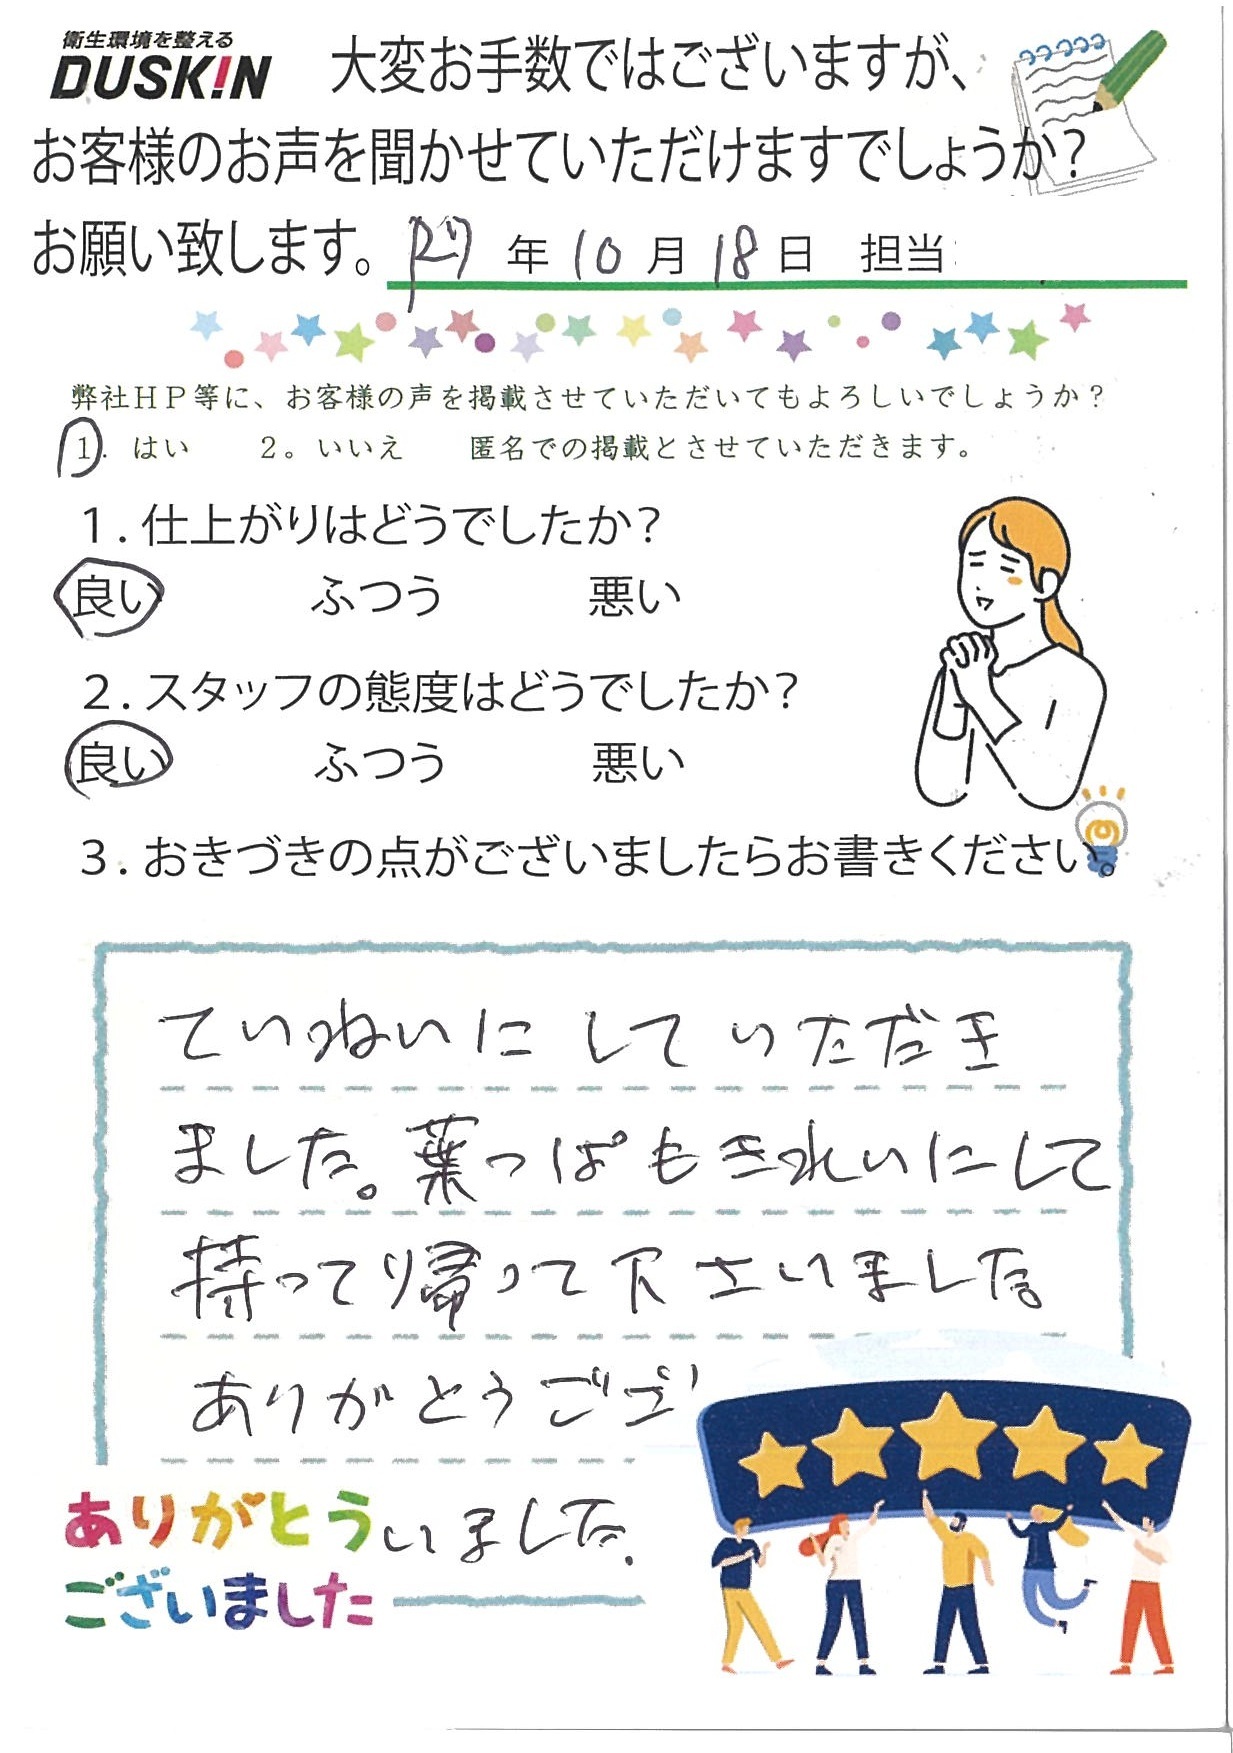 衛生環境を整える
DUSKIN
大変お手数ではございますが、
お客様のお声を聞かせていただけますでしょうか?
お願い致します。 年 10 月 18 日 担当
弊社HP等に、お客様の声を掲載させていただいてもよろしいでしょうか?
1. はい 2。いいえ 匿名での掲載とさせていただきます。
1.仕上がりはどうでしたか?
良い ふつう 悪い
2.スタッフの態度はどうでしたか?
良い ふつう 悪い
3.おきづきの点がございましたらお書きください。
ていねいにしていただき
ました。葉っぱもきれいにして
持って帰って下さいました。
ありがとうござ
いました.
ありがとう
ございました